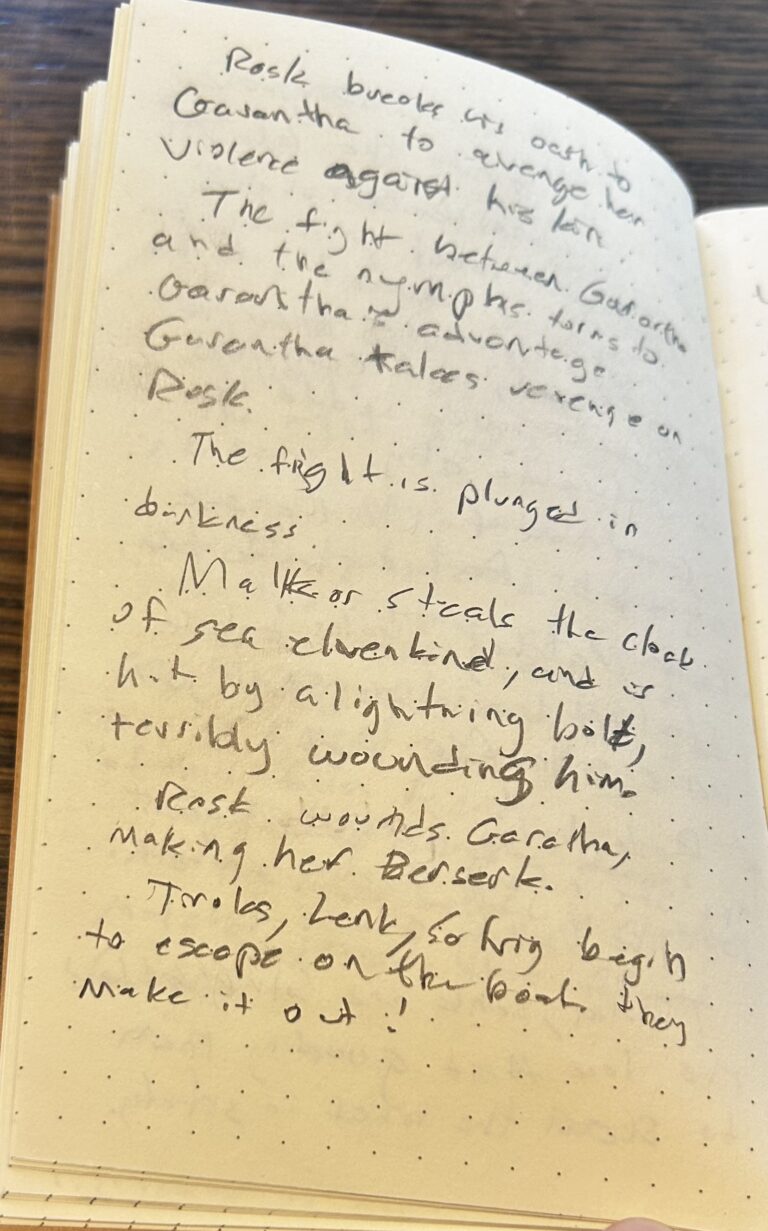 Rosk breaks his oath to
Garantha to avenge her
violence against his kin
The fight between Garantha
and the nymphs turns to
Garantha's advantage
Garantha takes revenge on
Rosk.
The fight is plunged in
darkness
Malkor steals the cloak
of sea elvenkind, and is
hit by a lightning bolt,
terribly wounding him.
Rosk wounds Garatha,
making her Berserk.
Trolas, Zenk, Solvig begin
to escape on the boat. they
make it out!